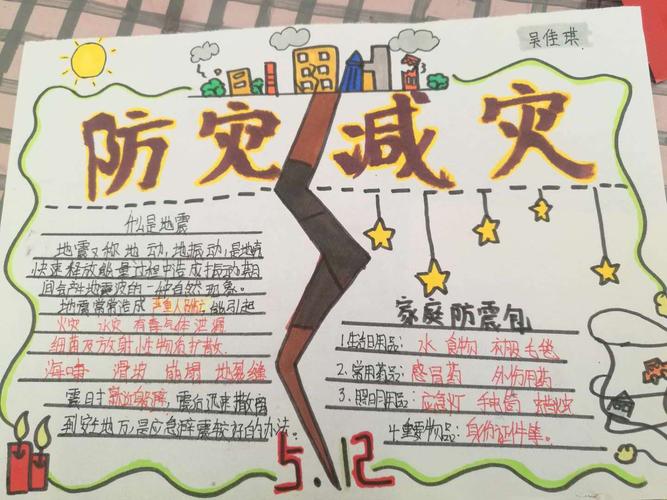 吴佳琪
防灾减灾
什么是地震
地震又称地动,地振动,是地壳
快速释放能量过程中造成振动,期
间会产生地震波的一种自然现象。
地震常常造成严重人员伤亡,能引起
火灾 水灾 有毒气体泄漏
细菌及放射性物质扩散
海啸 滑坡 崩塌 地裂缝
震时就近躲避,震后迅速撤离
到安全地方,是应急避震较好的办法。
家庭防震包
1.生活日用品:水 食物 衣服毛毯
2.常用药品:感冒药 外伤用药
3.照明用品:应急灯 手电筒 蜡烛
4.重要物品:身份证件集。
5.12